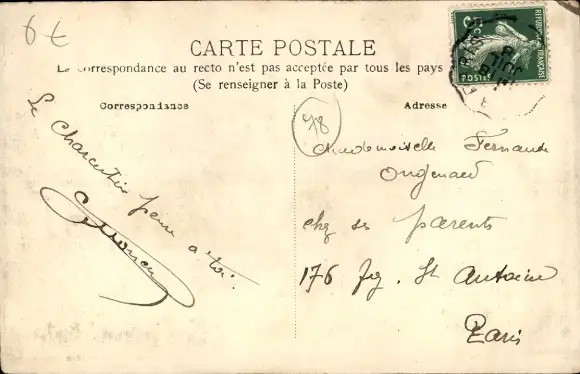 6 €
CARTE POSTALE
La correspondance au recto n'est pas acceptée par tous les pays
(Se renseigner à la Poste)
Correspondance
Adresse
78
RÉPUBLIQUE FRANÇAISE
POSTES
Le Charentin pense à toi.
Mademoiselle Fernande
chez ses parents
176 Fbg. St Antoine
Paris